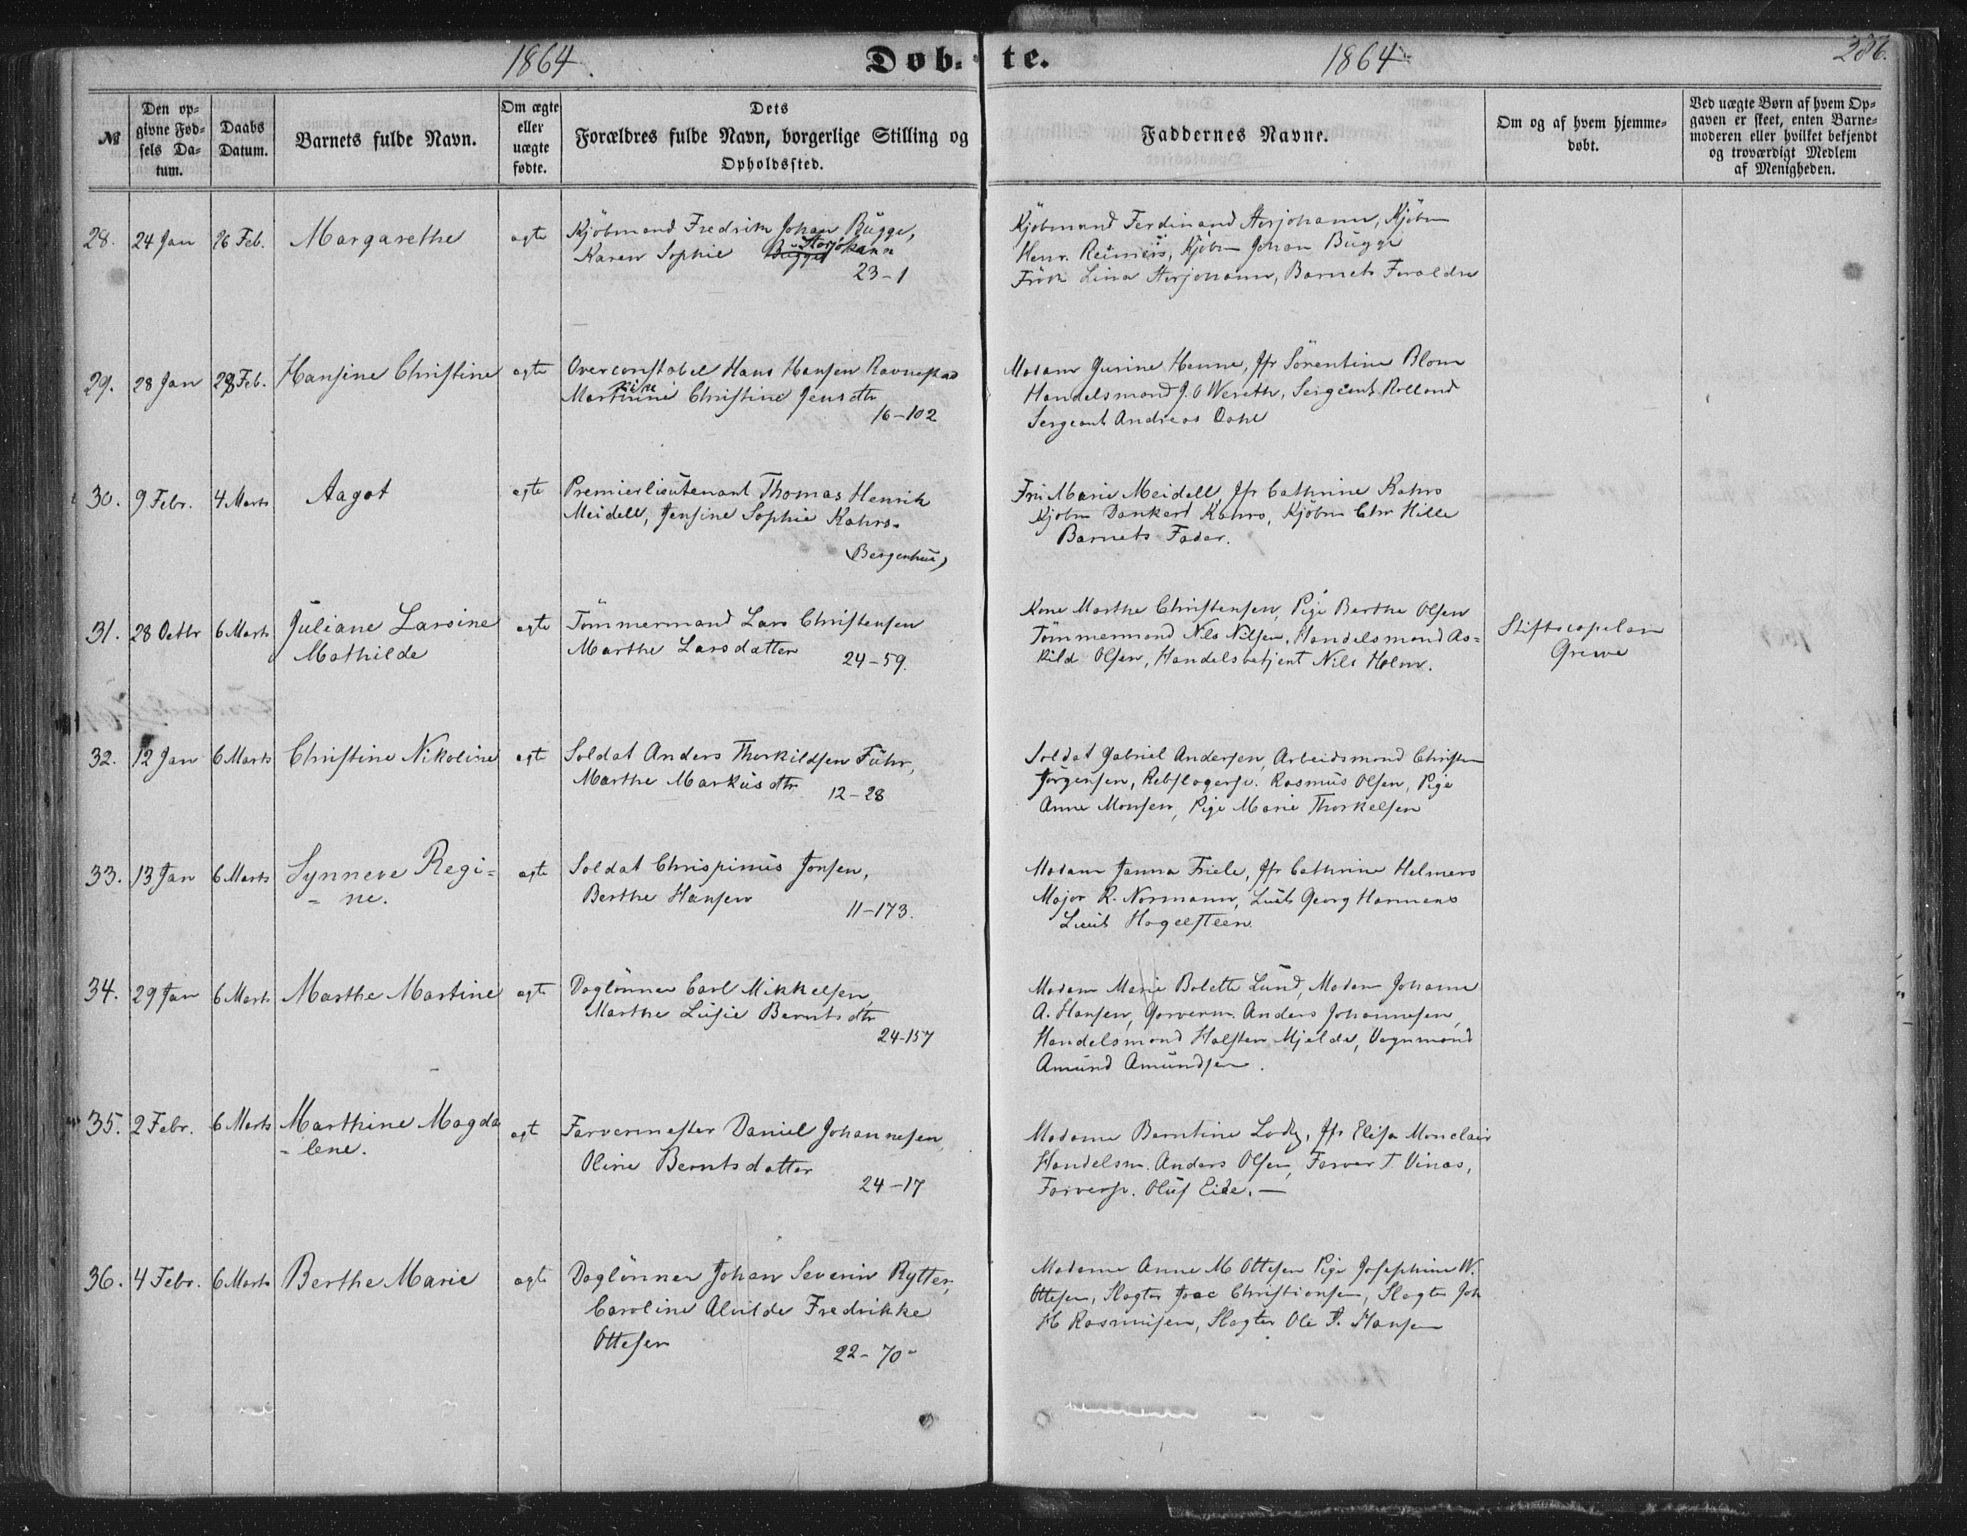 1864. Døb- te. 1864. 286.
№
Den opgivne Fødsels Datum.
Daabs Datum.
Barnets fulde Navn.
Om ægte eller uægte fødte.
Dets Forældres fulde Navn, borgerlige Stilling og Opholdssted.
Faddernes Navne.
Om og af hvem hjemmedøbt.
Ved uægte Børn af hvem Opgaven er skeet, enten Barnemoderen eller hvilket bekjendt og troværdigt Medlem af Menigheden.
28. 24 Jan 26 Feb. Margarethe ægte
Kjöbmand Fredrik Johan Bugge,
Karen Sophie Bugge Storjohann
23-1
Kjöbmand Ferdinand Storjohann, Kjöbm
Henr. Reimers, Kjöbm Johan Bugge
Frök Lina Storjohann, Barnets Foraldre
29. 28 Jan 28 Feb. Hansine Christine ægte
Overconstabel Hans Hansen Ravnestad
Marthine Christine Jensdtr
16-102
Madam Gurine Henne, Jfr Sörentine Blom
Handelsmand J. O Wereth, Sergeant Rolland
Sergeant Andreas Dahl
30. 9 Febr. 4 Marts Aagot ægte
Premierlieutenant Thomas Henrik
Meidell, Jensine Sophie Kahrs.
Bergenhus,
Fru Marie Meidell, Jfr Cathrine Kahrs
Kjöbm Dankert Kahrs, Kjöbm Chr Hille
Barnets Fader.
31. 28 Octbr 6 Marts Juliane Larsine
Mathilde ægte
Tömmermand Lars Christensen
Marthe Larsdatter
24-59.
Kone Marthe Christensen, Pige Berthe Olsen
Tömmermand Nils Nilsen, Handelsmand As-
kild Olsen, Handelsbetjent Nils Holm.
Stiftscapelan
Greve
32. 12 Jan 6 Marts Christine Nikoline ægte
Soldat Anders Thorkildsen Führ,
Marthe Markusdtr
12-28
Soldat Gabriel Andersen, Arbeidsmand Christen
Jörgensen, Rebslagersv. Rasmus Olsen, Pige
Anne Monsen, Pige Marie Thorkelsen
33. 13 Jan 6 Marts Synneve Regi-
- ne. ægte
Soldat Chrispinus Jonsen,
Berthe Hansen
11-173.
Madam Janna Friele, Jfr Cathrine Helmers
Major R. Normann, Lieut Georg Harmens
Lieut Hagelsteen
34. 29 Jan 6 Marts Marthe Martine ægte
Daglönner Carl Mikkelsen,
Marthe Lusie Berntsdtr
24-157
Madam Marie Bolette Lund, Madam Johanne
A. Hansen, Garverm. Anders Johannesen,
Handelsmand Halsten Mjelde, Vognmand
Amund Amundsen.
35. 2 Febr. 6 Marts Marthine Magda
- lene. ægt
Farvermester Daniel Johannesen,
Oline Berntsdatter
24-17
Madame Berntine Lodtz, Jfr Elisa Monclair
Handelsm. Anders Olsen, Farver T. Vinas,
Farversv. Oluf Eide. —
36. 4 Febr. 6 Marts Berthe Marie ægte
Daglönner Johan Severin Rytter,
Caroline Alvilde Fredrikke
Ottesen
22-70-
Madame Anne M Ottesen Pige Josephine W.
Ottesen, Slagter Joac Christiansen, Slagter Joh
H Rasmusen, Slagter Ole P. Hansen